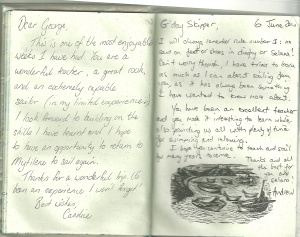 Dear George,
This is one of the most enjoyable
weeks I have had. You are a
wonderful teacher, a great cook,
and an extremely capable
sailor (in my limited experience)
I look forward to building on the
skills I have learnt and I hope
to have an opportunity to return to
Mytilene to sail again.
Thanks for a wonderful trip. It's
been an experience I won't forget
Best wishes,
Candice
Skipper, 6 June
I will always remember rule number 1: no
on feet or shoes in
Don't worry though, I have tried to learn
as much as I can about sailing
as it has always been something
I have wanted to know more about.
You have been an excellent teacher
and you made it interesting to learn while
also providing us all with plenty of time
for swimming and relaxing.
I hope you continue to teach and sail
for many years to come.
Thanks and all
the best for
you and
Andrew